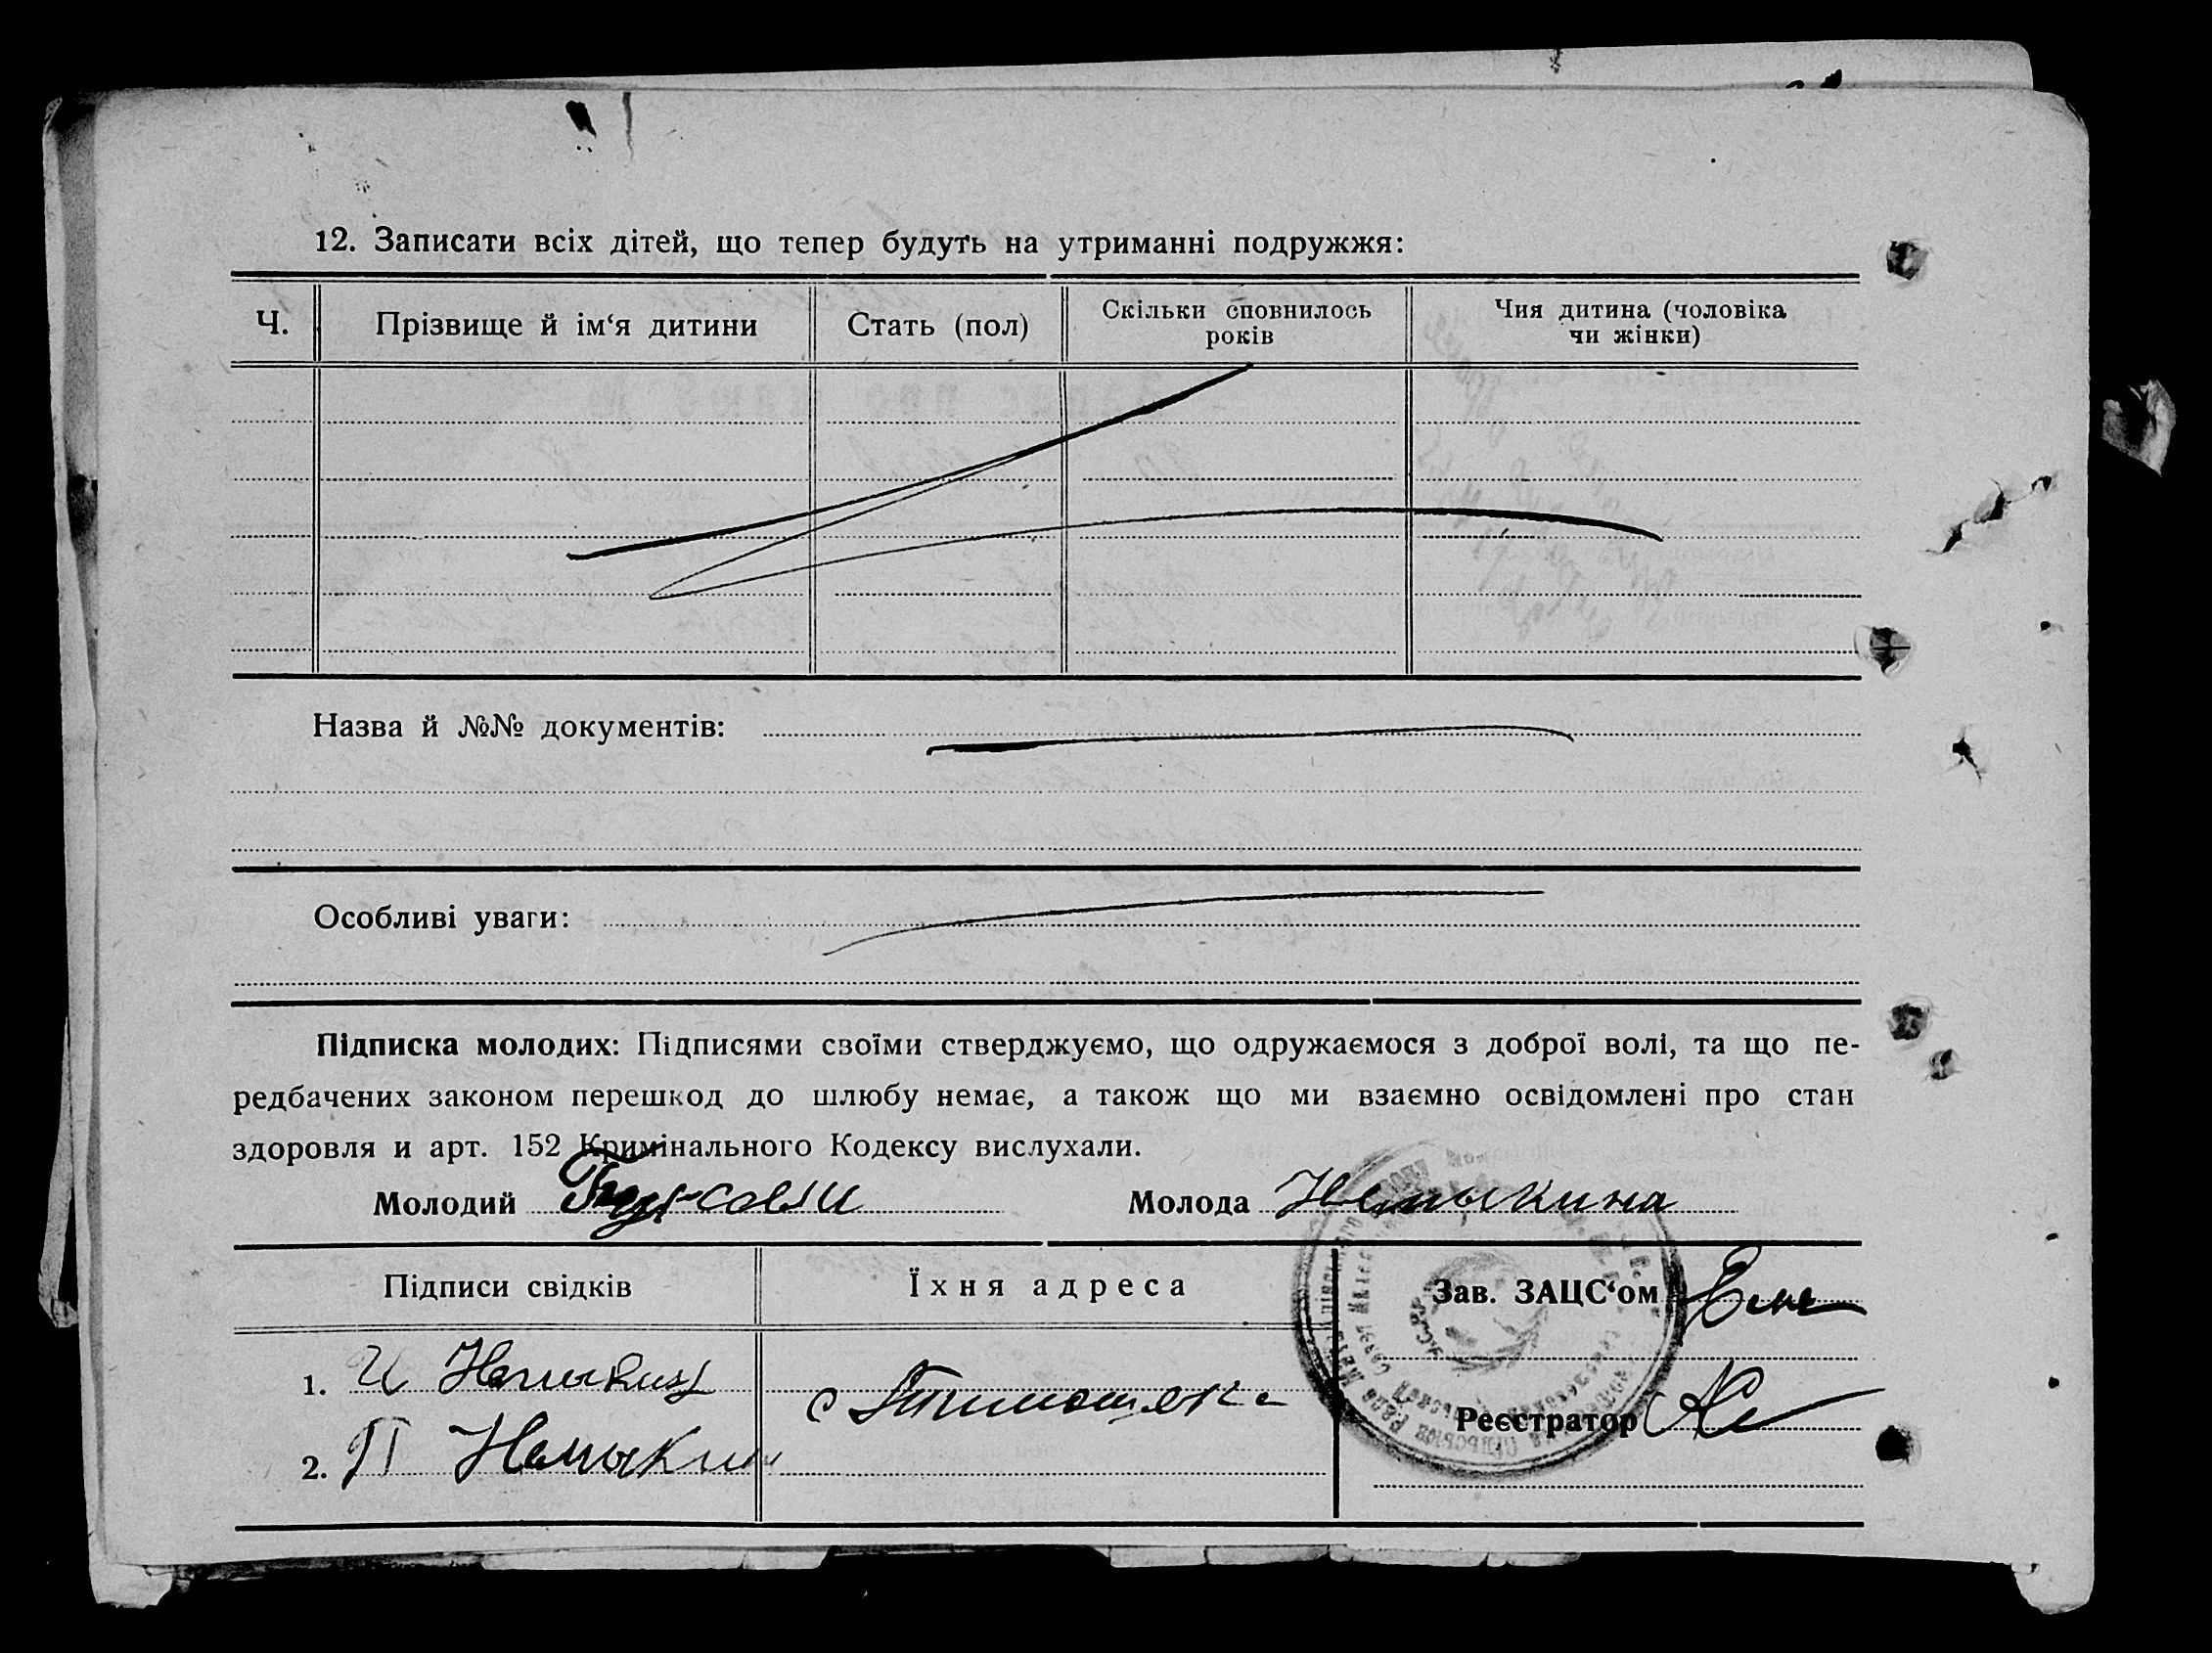 12. Записати всіх дітей, що тепер будуть на утриманні подружжя:
Ч. Прізвище й ім‘я дитини Стать (пол) Скільки сповнилось років Чия дитина (чоловіка чи жінки)
Назва й №№ документів:
Особливі уваги:
Підписка молодих: Підписями своїми стверджуємо, що одружаємося з доброї волі, та що пе-
редбачених законом перешкод до шлюбу немає, а також що ми взаємно освідомлені про стан
здоровля и арт. 152 Кримінального Кодексу вислухали.
Молодий Молода Немыкина
Підписи свідків Їхня адреса Зав. ЗАЦС‘ом
1. И Немыкин
с
Реєстратор
2. П Немыкин